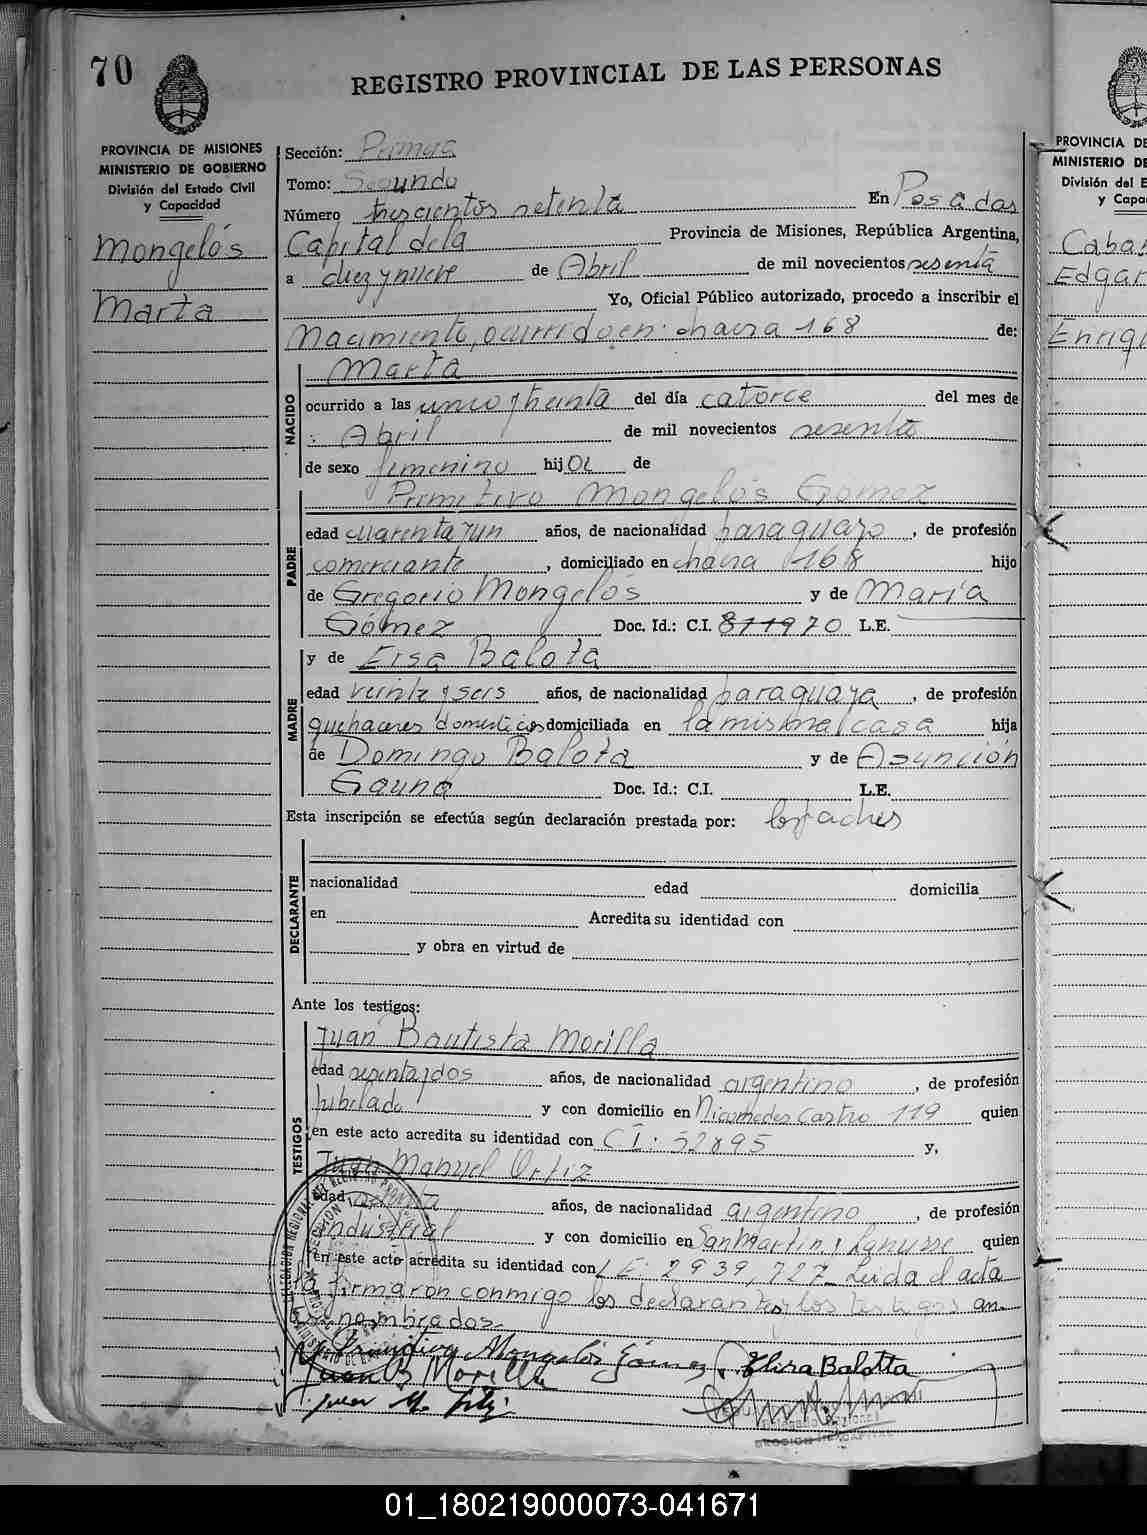 70
REGISTRO PROVINCIAL DE LAS PERSONAS
PROVINCIA DE MISIONES
MINISTERIO DE GOBIERNO
División del Estado Civil
y Capacidad
Mongelós
Marta
Sección: Primera
Tomo: Segundo
Número trescientos setenta En Posadas
Capital de la Provincia de Misiones, República Argentina,
a diez y nueve de Abril de mil novecientos sesenta
Yo, Oficial Público autorizado, procedo a inscribir el
Nacimiento, ocurrido en: chacra 168 de:
Marta
NACIDO
ocurrido a las una y treinta del día catorce del mes de
Abril de mil novecientos sesenta
de sexo femenino hija de
Primitivo Mongelós Gomez
PADRE
edad cuarenta y un años, de nacionalidad paraguayo, de profesión
comerciante, domiciliado en chacra 168 hijo
de Gregorio Mongelós y de María
Gómez Doc. Id.: C.I. 811970 L.E.
MADRE
y de Elsa Balota
edad veinte y seis años, de nacionalidad paraguaya, de profesión
quehaceres domesticos domiciliada en la misma casa hija
de Domingo Balota y de Asunción
Gauna Doc. Id.: C.I. L.E.
Esta inscripción se efectúa según declaración prestada por: los padres
DECLARANTE
nacionalidad edad domicilia
en Acredita su identidad con
y obra en virtud de
Ante los testigos:
TESTIGOS
Juan Bautista Morilla
edad y dos años, de nacionalidad argentino, de profesión
jubilado y con domicilio en Nicomedes Castro 119 quien
en este acto acredita su identidad con C I: 52895 y,
Juan Manuel Ortiz
edad años, de nacionalidad argentino, de profesión
industrial y con domicilio en San Martin y Lanusse quien
en este acto acredita su identidad con L E: 2939,727 Leida el acta
la firmaron conmigo los declarantes y los testigos an-
tes nombrados.
Primitivo Mongelós Gómez. Elisa Balotta
Juan B Morilla
PROVINCIA DE
MINISTERIO DE
División del E
y Capa
Edgar
01_180219000073-041671